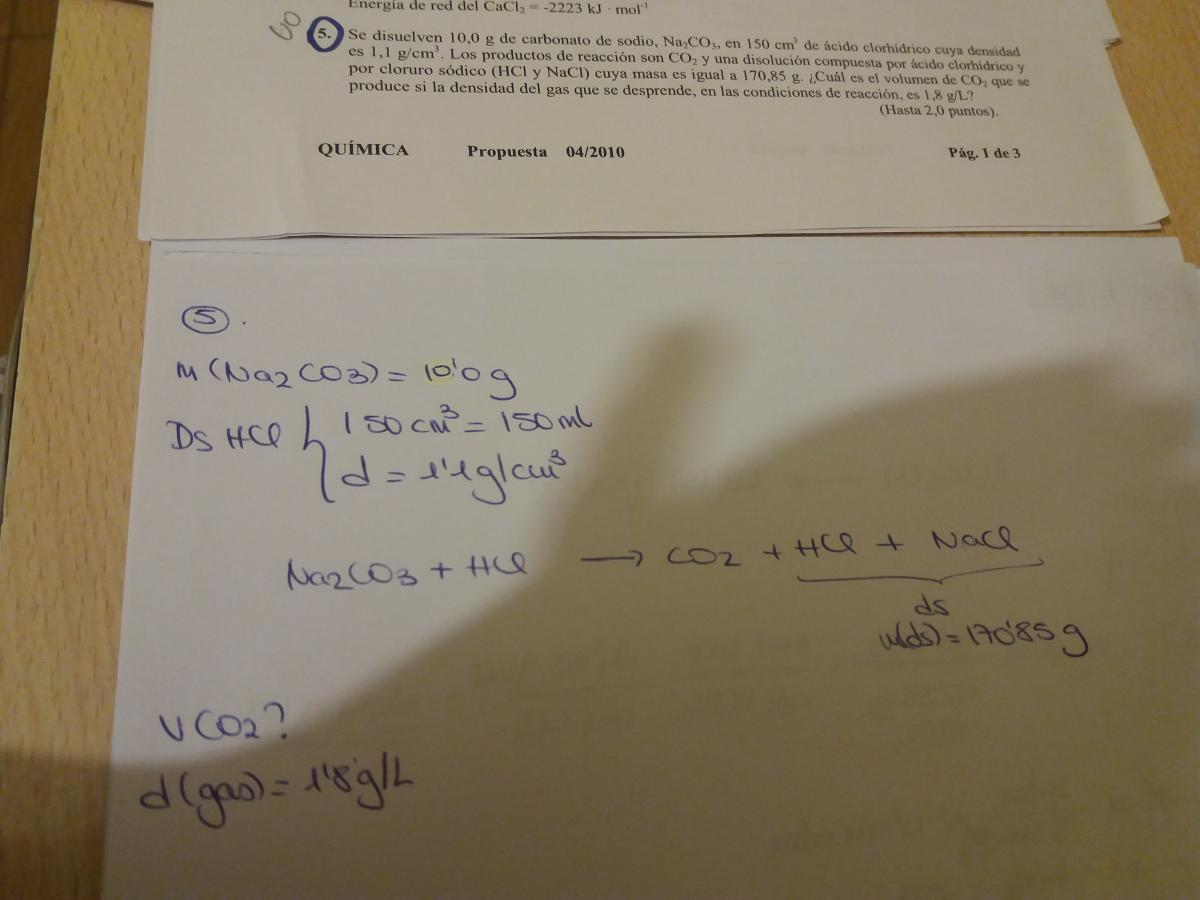 Energía de red del CaCl₂ = -2223 kJ · mol⁻¹
5. Se disuelven 10,0 g de carbonato de sodio, Na₂CO₃, en 150 cm³ de ácido clorhídrico cuya densidad
es 1,1 g/cm³. Los productos de reacción son CO₂ y una disolución compuesta por ácido clorhídrico y
por cloruro sódico (HCl y NaCl) cuya masa es igual a 170,85 g. ¿Cuál es el volumen de CO₂ que se
produce si la densidad del gas que se desprende, en las condiciones de reacción, es 1,8 g/L?
(Hasta 2,0 puntos).
QUÍMICA Propuesta 04/2010 Pág. 1 de 3
5.
m(Na2CO3) = 10'0g
Ds HCl 150cm³ = 150ml
d = 1'1g/cm³
Na2CO3 + HCl → CO2 + HCl + NaCl
ds
m(ds) = 170'85g
V CO2?
d(gas) = 1'8g/L